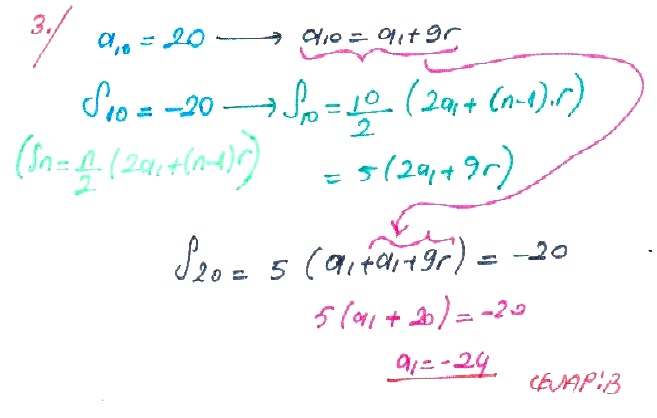 3./ a₁₀ = 20 → a₁₀ = a₁ + 9r
S₁₀ = -20 → S₁₀ = 10/2 (2a₁ + (n-1).r)
(Sn = n/2 (2a₁ + (n-1)r) = 5(2a₁ + 9r)
S₂₀ = 5 (a₁ + a₁ + 9r) = -20
5(a₁ + 20) = -20
a₁ = -24
CEVAP:B